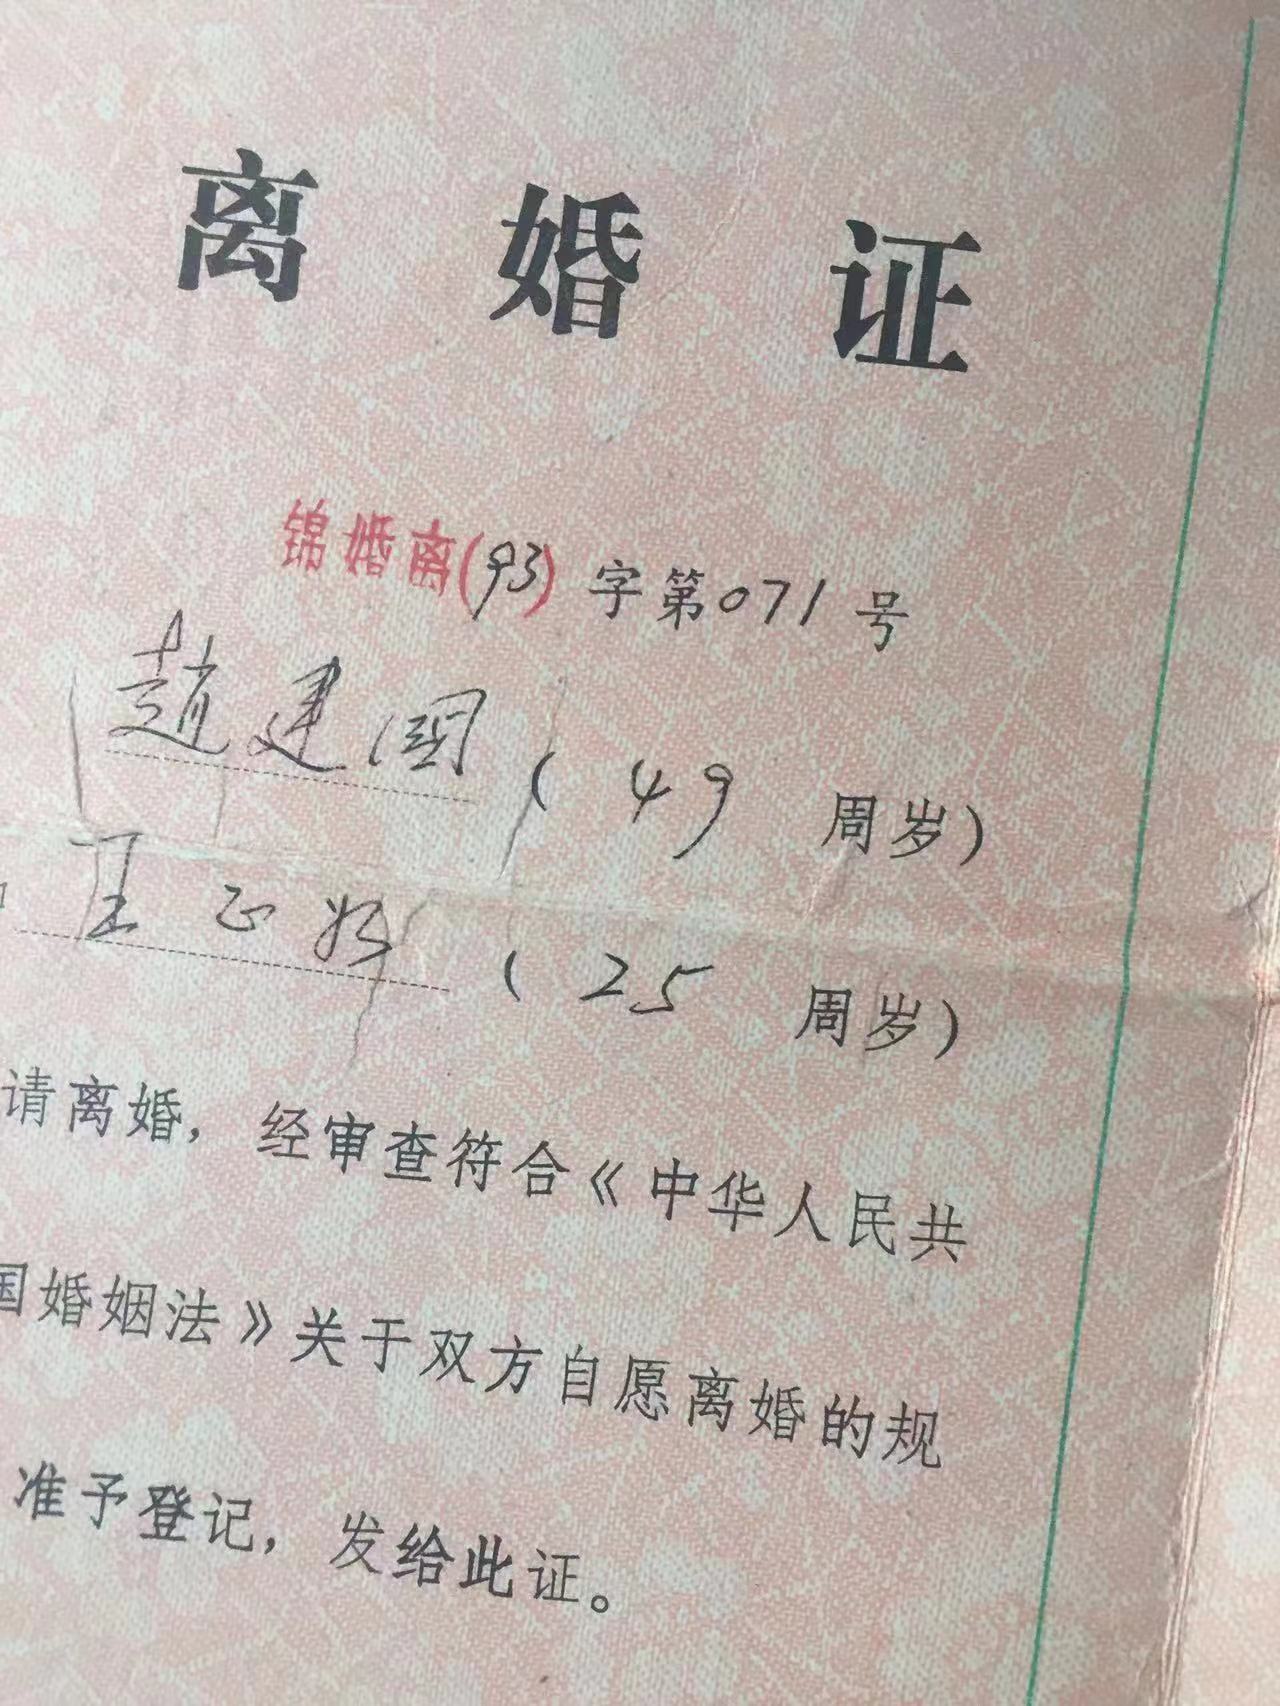 离婚证
锦婚离(93)字第071号
趙建国(49周岁)
王正(25周岁)
请离婚，经审查符合《中华人民共
国婚姻法》关于双方自愿离婚的规
准予登记，发给此证。